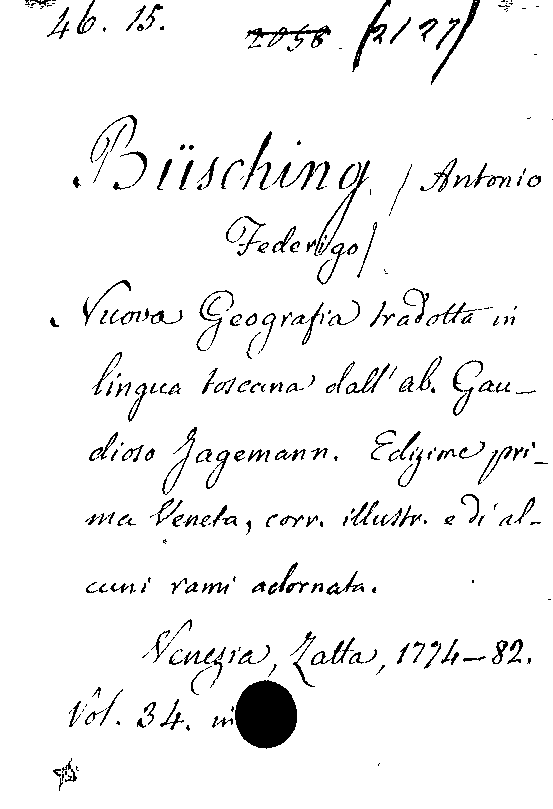 46. 15. 2058 (2127)
Büsching. / Antonio
Federigo /
Nuova Geografia tradotta in
lingua toscana dall' ab. Gau-
dioso Jagemann. Edizione pri-
ma Veneta, corr. illustr. e di al-
cuni rami adornata.
Venezia, Zatta, 1774-82.
Vol. 34. in